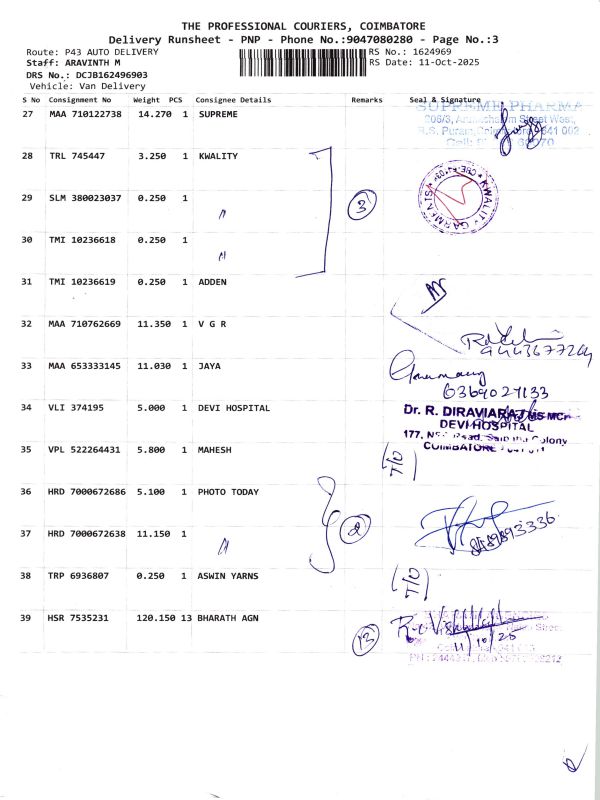 THE PROFESSIONAL COURIERS, COIMBATORE
Delivery Runsheet - PNP - Phone No.:9047080280 - Page No.:3
Route: P43 AUTO DELIVERY RS No.: 1624969
Staff: ARAVINTH M RS Date: 11-Oct-2025
DRS No.: DCJB162496903
Vehicle: Van Delivery
S No Consignment No Weight PCS Consignee Details Remarks Seal & Signature
27 MAA 710122738 14.270 1 SUPREME
SUPREME PHARMA
28 TRL 745447 3.250 1 KWALITY
29 SLM 380023037 0.250 1 〃 3
KWALITY GARMENTS
30 TMI 10236618 0.250 1 〃
31 TMI 10236619 0.250 1 ADDEN
32 MAA 710762669 11.350 1 V G R
33 MAA 653333145 11.030 1 JAYA
34 VLI 374195 5.000 1 DEVI HOSPITAL
Dr. R. DIRAVIARAJ MS MCh
DEVI HOSPITAL
COIMBATORE
35 VPL 522264431 5.800 1 MAHESH (T/O)
36 HRD 7000672686 5.100 1 PHOTO TODAY
37 HRD 7000672638 11.150 1 〃 2
38 TRP 6936807 0.250 1 ASWIN YARNS (T/O)
39 HSR 7535231 120.150 13 BHARATH AGN 13
11/10/25